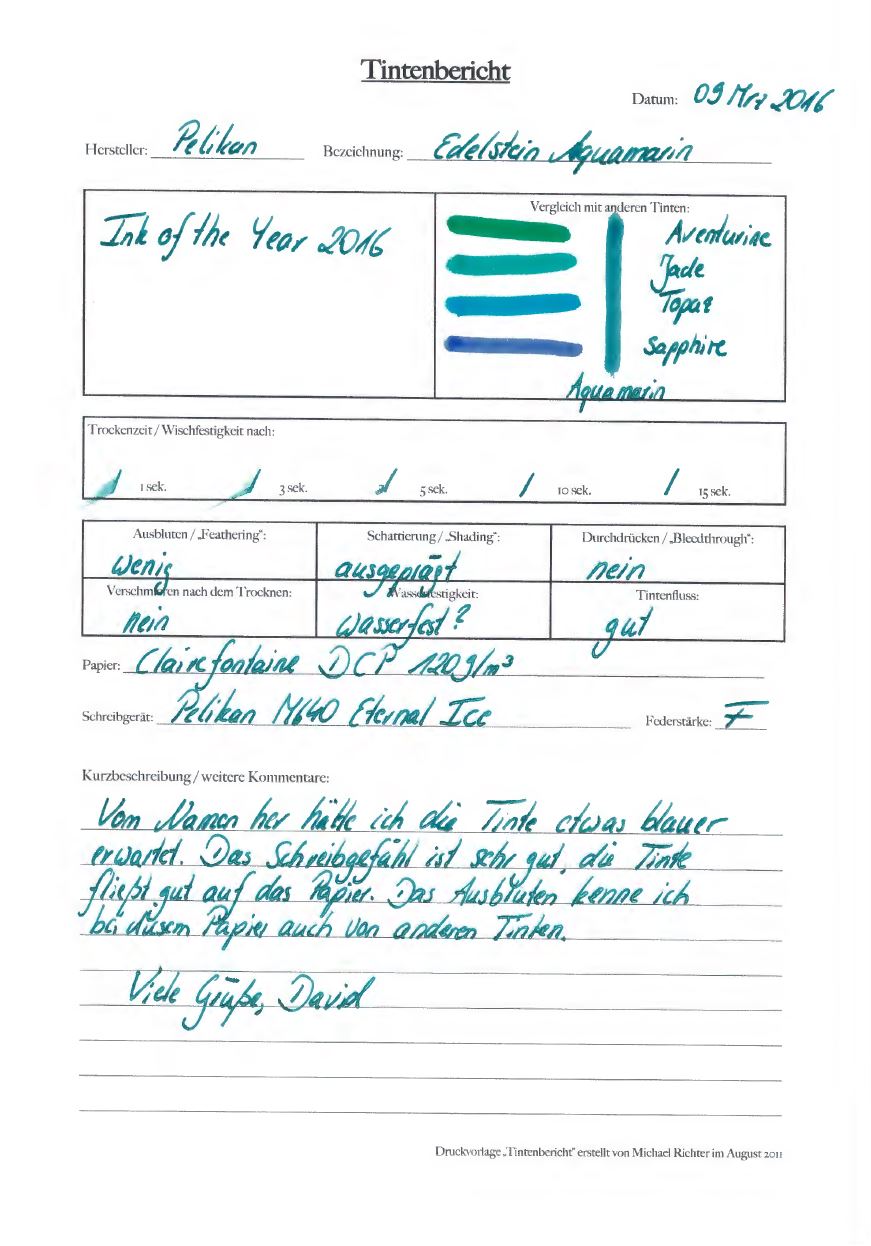 Tintenbericht
Datum: 09 Mrz 2016
Hersteller: Pelikan Bezeichnung: Edelstein Aquamarin
Ink of the Year 2016
Vergleich mit anderen Tinten:
Aventurine
Jade
Topaz
Sapphire
Aquamarin
Trockenzeit / Wischfestigkeit nach:
1 sek. 3 sek. 5 sek. 10 sek. 15 sek.
Ausbluten / „Feathering“: Schattierung / „Shading“: Durchdrücken / „Bleedthrough“:
wenig ausgeprägt nein
Verschmieren nach dem Trocknen: Wasserfestigkeit: Tintenfluss:
nein wasserfest? gut
Papier: Clairefontaine DCP 120g/m³
Schreibgerät: Pelikan M640 Eternal Ice Federstärke: F
Kurzbeschreibung / weitere Kommentare:
Vom Namen her hätte ich die Tinte etwas blauer
erwartet. Das Schreibgefühl ist sehr gut, die Tinte
fließt gut auf das Papier. Das Ausbluten kenne ich
bei diesem Papier auch von anderen Tinten.
Viele Grüße, David
Druckvorlage „Tintenbericht“ erstellt von Michael Richter im August 2011